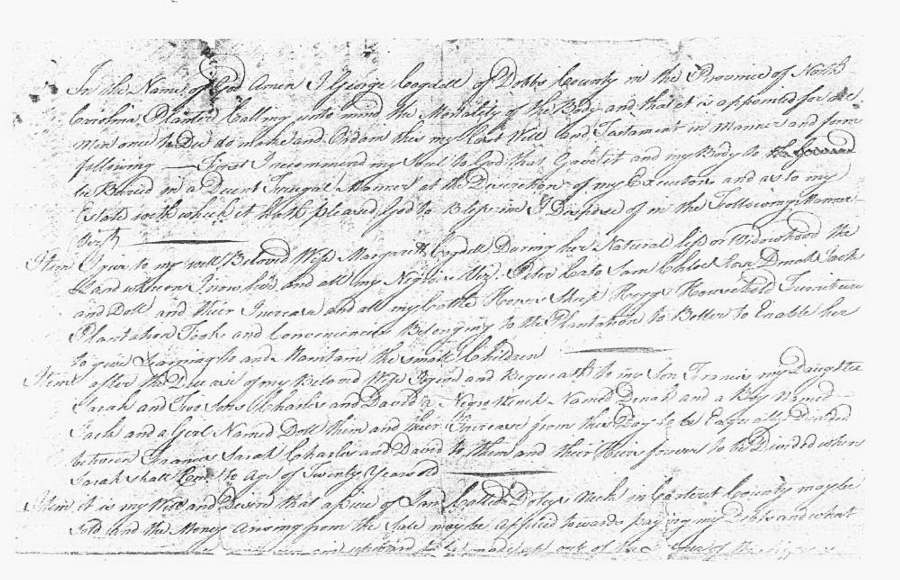 In the Name of God Amen I George Cogdell of Dobbs County in the Province of North
Carolina Planter Calling unto mind the Mortality of the Body and that it is appointed for all
Men once to Die do make and Ordain this my Last Will and Testament in Manner and form
following — First I recommend my Soul to God that Gave it and my Body to
be Buried in a Decent Manner at the Discretion of my Executors and as to my
Estate with which it hath pleased God to Bless me I Dispose of in the Following Manner
First
Item I give to my well Beloved Wife Margaret Cogdell During her Natural life or Widowhood the
Land whereon I now live and all my Negroes Viz. Peter Cato Sam Chloe Dinah Jack
and Doll and their Increase and all my Cattle Horses Sheep Hoggs Household Furniture
Plantation Tools and Conveniencies Belonging to the Plantation to Better to Enable her
to give Learning to and Maintain the small Children
Item after the Decease of my Beloved Wife I give and Bequeath to my Son Francis my Daughter
Sarah and Two Sons Charles and David a Negro Named Dinah and a Boy Named
Jack and a Girl Named Doll them and their Increase from this Day to be Equally Divided
between Francis Sarah Charles and David to them and their Heirs forever to be Divided when
Sarah shall Come to Age of Twenty Years old
Item it is my Will and Desire that a piece of Land Called Neck in Carteret County may be
Sold and the Money Arising from the Sale may be applied towards paying my Debts and what
to be made out of the